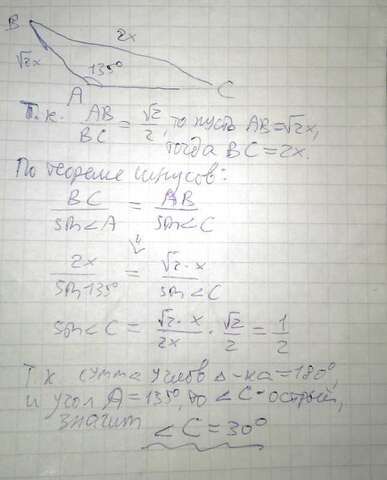 B
2x
√2x
135°
A
C
Т.к. AB/BC = √2/2, то пусть AB=√2x,
тогда BC=2x.
По теореме синусов:
BC/sin∠A = AB/sin∠C
⇓
2x/sin135° = √2·x/sin∠C
sin∠C = √2·x/2x · √2/2 = 1/2
Т.к сумма углов Δ-ка=180°,
и угол A=135°, то ∠C-острый,
значит
∠C=30°